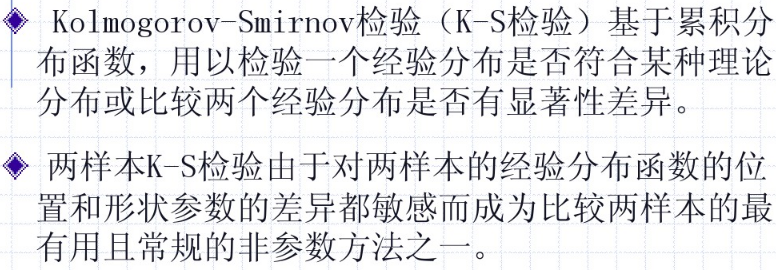 Kolmogorov-Smirnov检验（K-S检验）基于累积分
布函数，用以检验一个经验分布是否符合某种理论
分布或比较两个经验分布是否有显著性差异。
两样本K-S检验由于对两样本的经验分布函数的位
置和形状参数的差异都敏感而成为比较两样本的最
有用且常规的非参数方法之一。